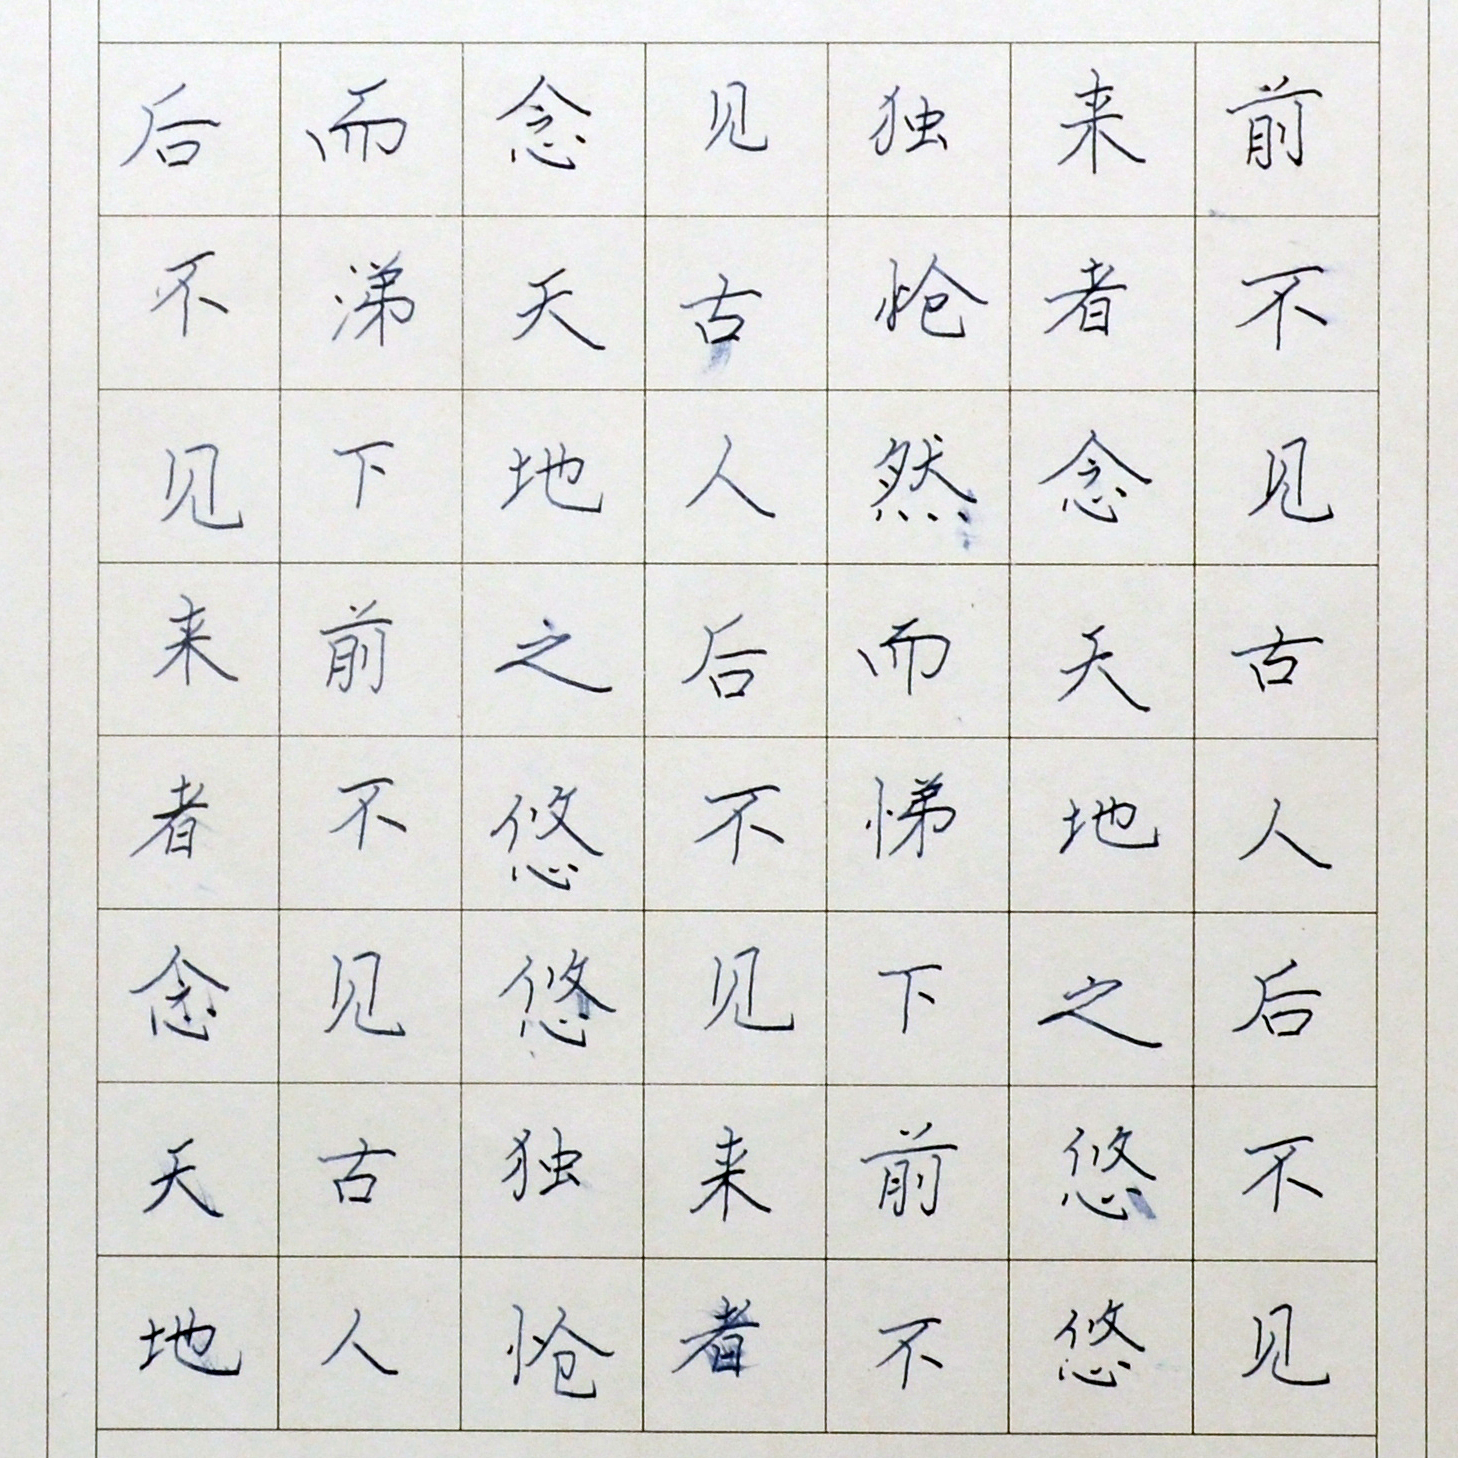 前不见古人后不见
来者念天地之悠悠
独怆然而悌下前不
见古人后不见来者
念天地之悠悠独怆
而涕下前不见古人
后不见来者念天地